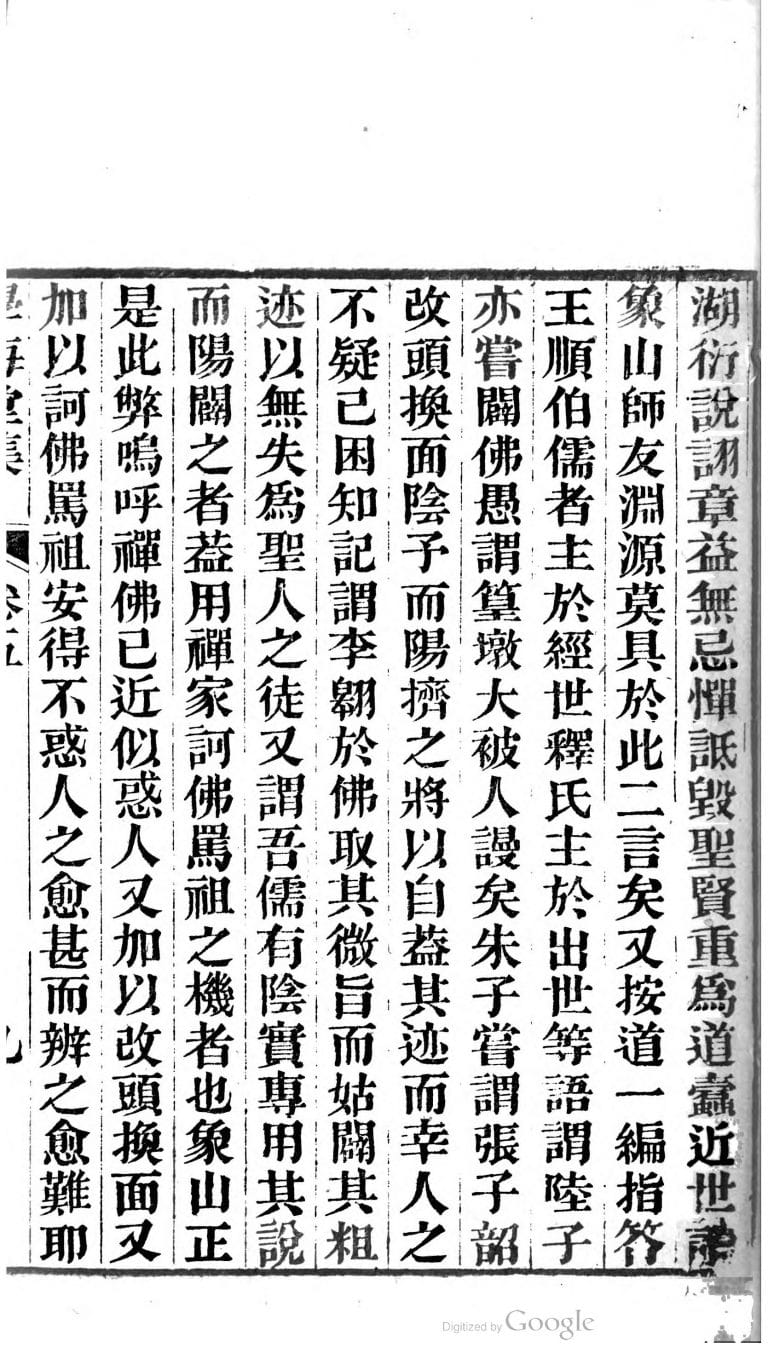 湖衍說詡章益無忌憚詆毀聖賢重爲道蠧近世論
象山師友淵源莫具於此二言矣又按道一編指答
王順伯儒者主於經世釋氏主於出世等語謂陸子
亦嘗闢佛愚謂篁墩大被人謾矣朱子嘗謂張子韶
改頭換面陰予而陽擠之將以自葢其迹而幸人之
不疑已困知記謂李翱於佛取其微旨而姑闢其粗
迹以無失爲聖人之徒又謂吾儒有陰實專用其說
而陽闢之者葢用禪家訶佛罵祖之機者也象山正
是此弊嗚呼禪佛已近似惑人又加以改頭換面又
加以訶佛罵祖安得不惑人之愈甚而辨之愈難耶
學海堂集
卷五
九
Digitized by Google